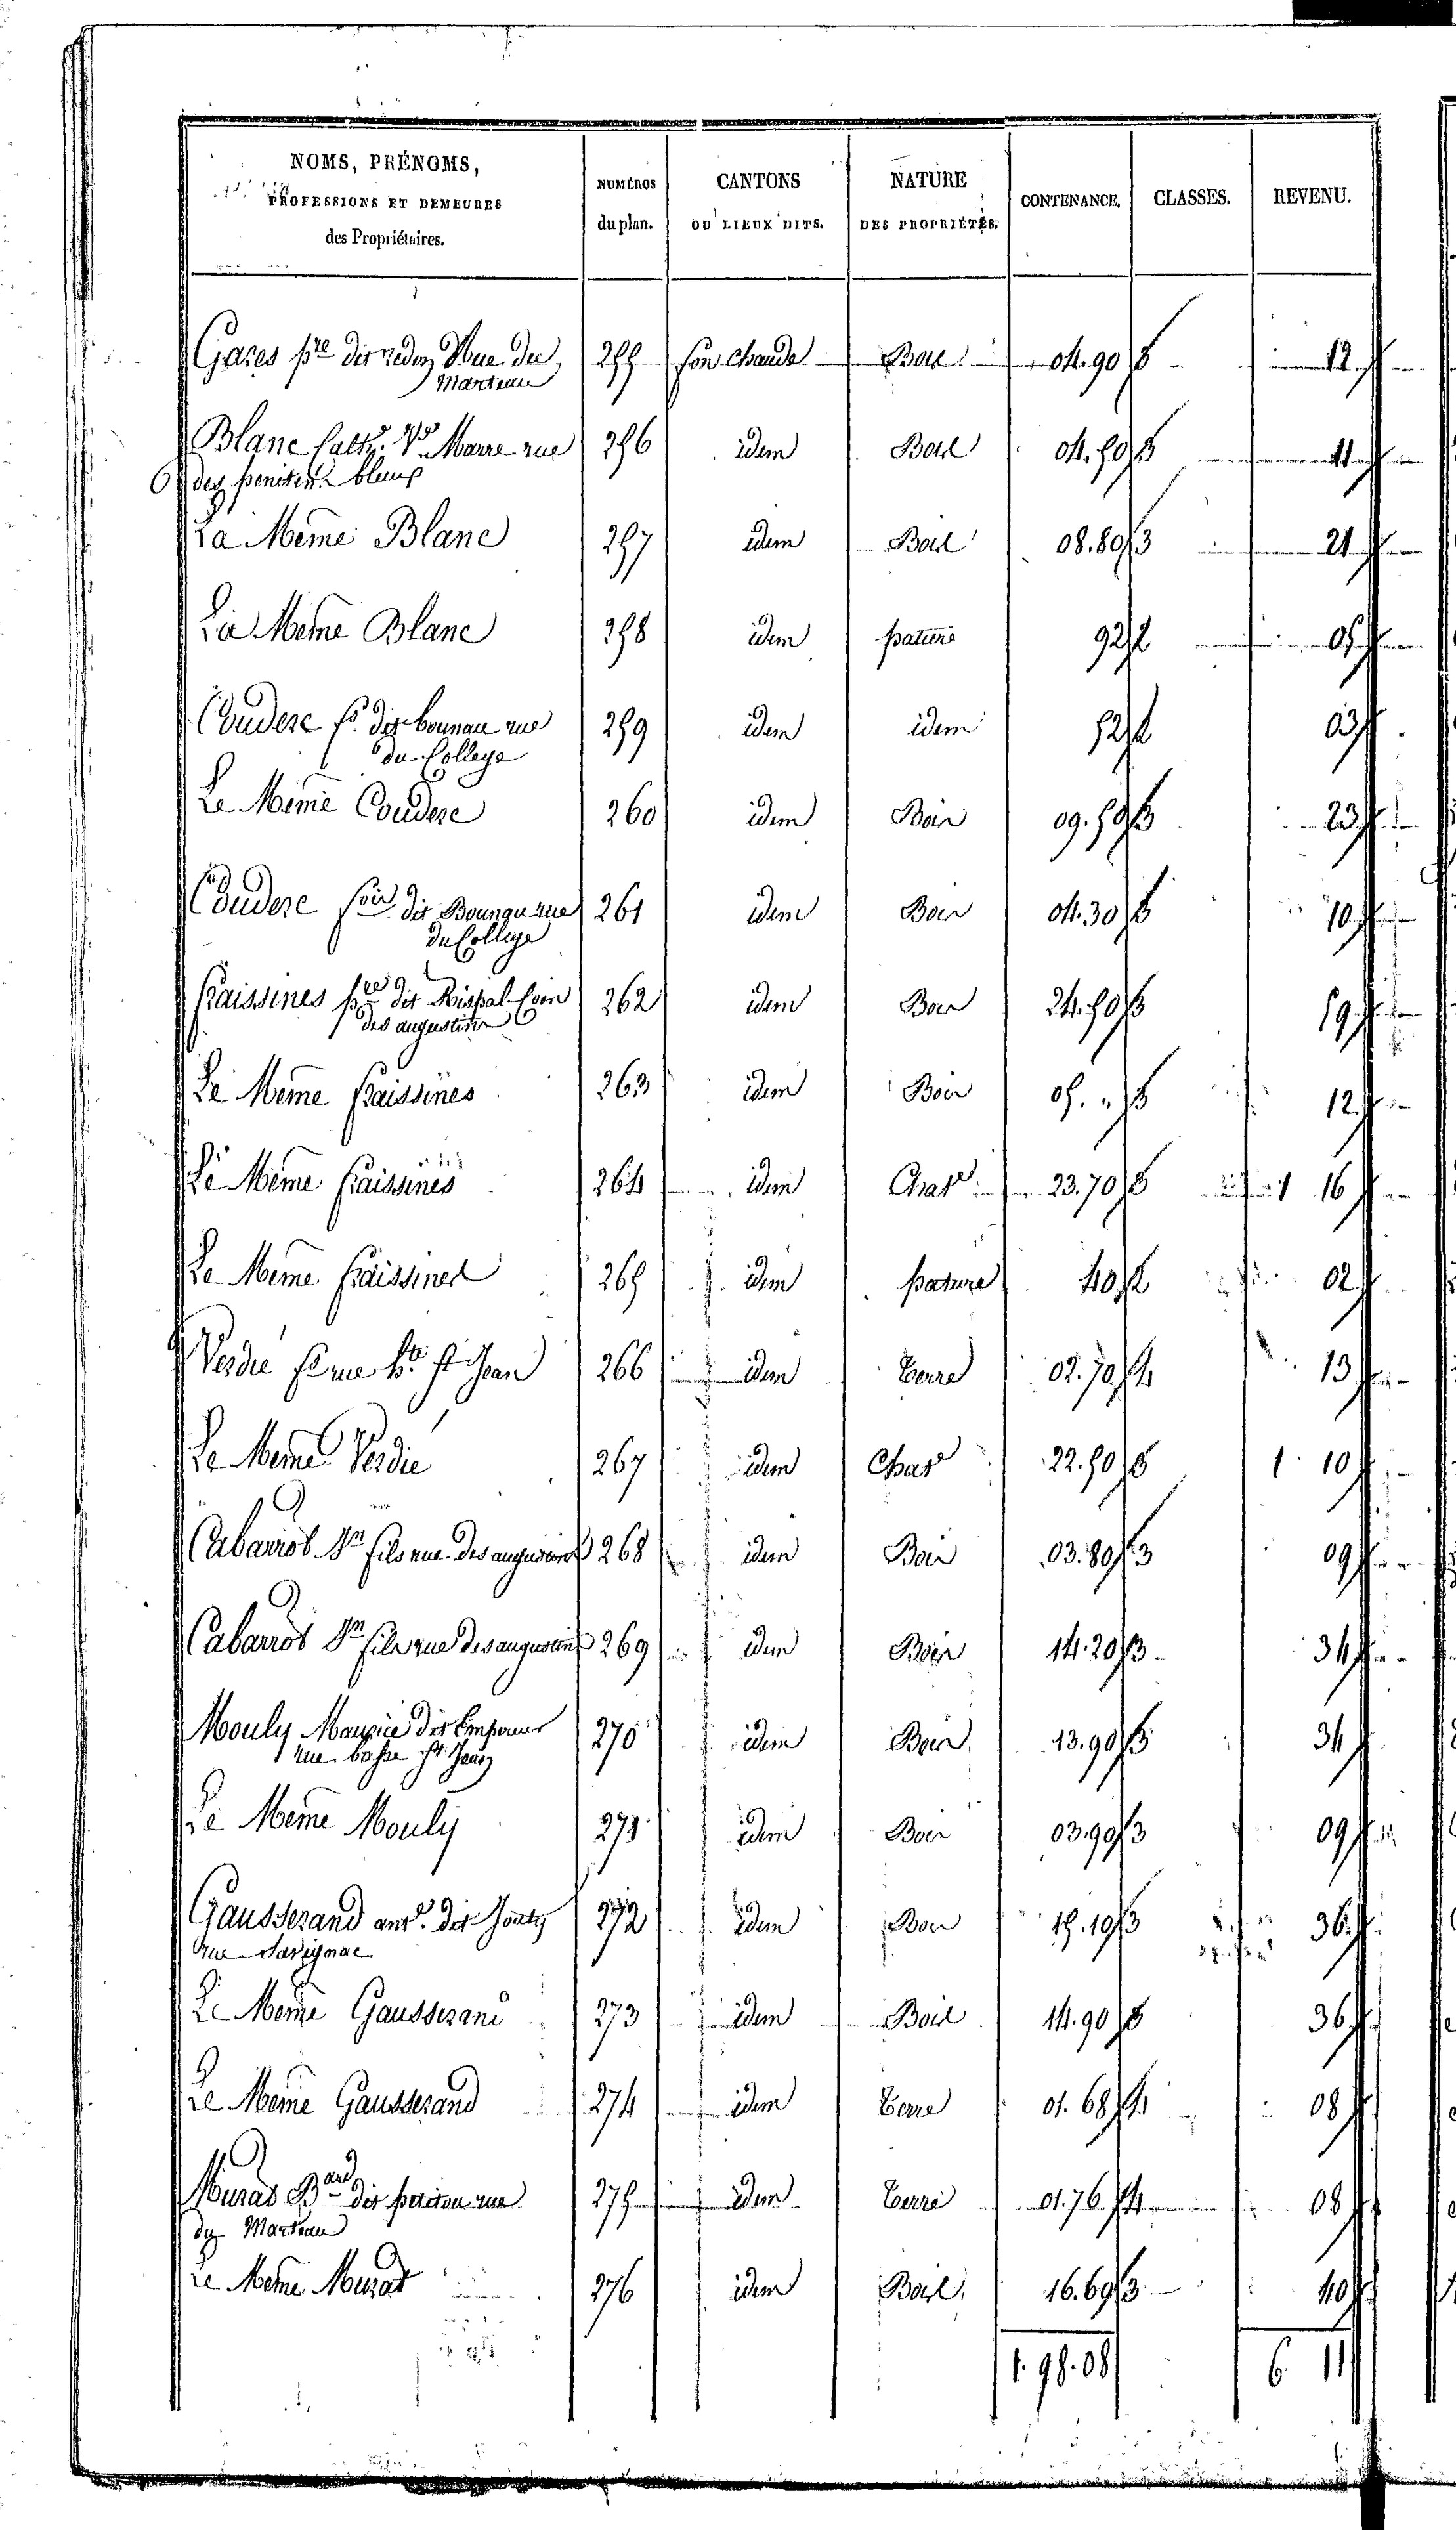 NOMS, PRÉNOMS, PROFESSIONS ET DEMEURES des Propriétaires. NUMÉROS du plan. CANTONS OU LIEUX DITS. NATURE DES PROPRIÉTÉS. CONTENANCE. CLASSES. REVENU.
Gares pre dit redon Rue du 255 fon chaude Bois 04.90 3 12
Marteau
Blanc Cathe. Ve Marre rue 256 idem Bois 04.50 3 11
des peniten bleus
La Meme Blanc 257 idem Bois 08.80 3 21
La Meme Blanc 258 idem pature 92 2 05
Couderc fs dit bounau rue 259 idem idem 52 2 03
du College
Le Meme Couderc 260 idem Bois 09.50 3 23
Couderc fois dit Bounau rue 261 idem Bois 04.30 3 10
du College
fraissines pre dit Rispal Coin 262 idem Bois 24.50 3 59
des augustins
Le Meme fraissines 263 idem Bois 05. " 3 12
Le Meme fraissines 264 idem Chate 23.70 3 1 16
Le Meme fraissines 265 idem pature 40 2 02
Verdié fs rue bse st Jean 266 idem terre 02.70 4 13
Le Meme Verdié 267 idem Chate 22.50 3 1 10
Cabarrot Jn fils rue des augustins 268 idem Bois 03.80 3 09
Cabarrot Jn fils rue des augustins 269 idem Bois 14.20 3 34
Mouly Maurice dit 270 idem Bois 13.90 3 34
rue basse st Jean
Le Meme Mouly 271 idem Bois 03.90 3 09
Gausserand ante. dit Jouty 272 idem Bois 15.10 3 36
rue Savignac
Le Meme Gausserand 273 idem Bois 14.90 3 36
Le Meme Gausserand 274 idem terre 01.68 4 08
Murat Bard dit rue 275 idem terre 01.76 4 08
du Marteau
Le Meme Murat 276 idem Bois 16.60 3 40
1.98.08 6 11